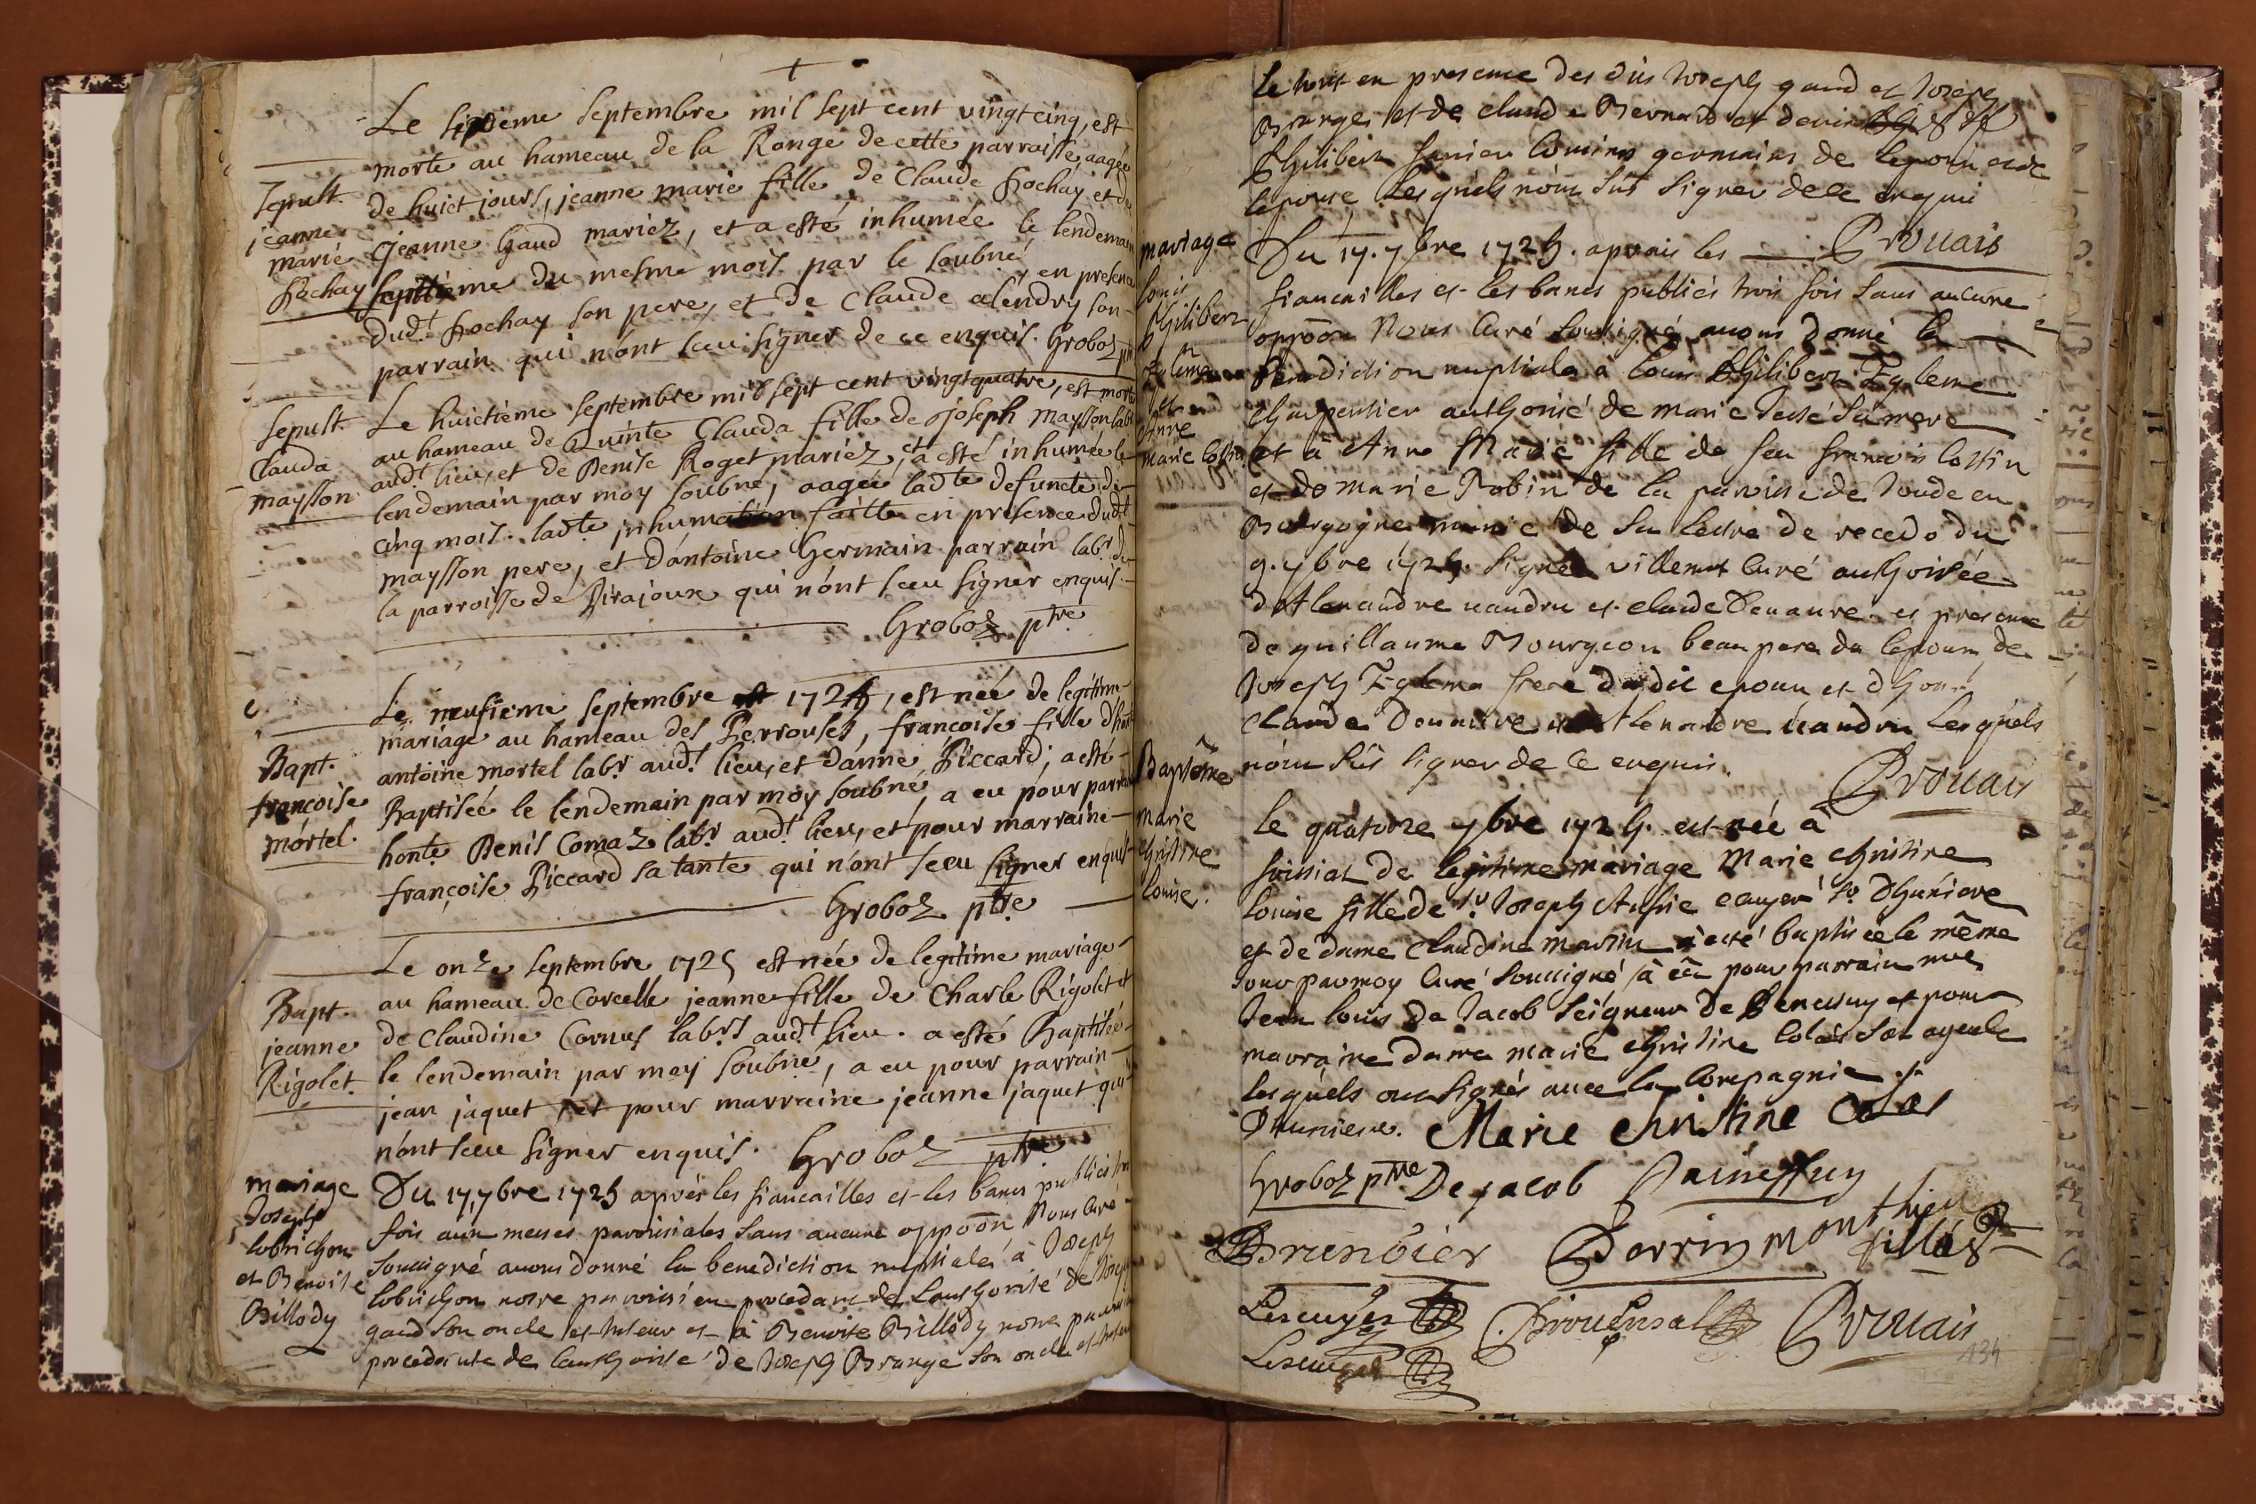 Le sixieme septembre mil sept cent vingt cinq, est
morte au hameau de la Ronge de cette parroisse, aagée
de huict jours, jeanne marie fille de Claude Hochay et de
jeanne Gaud mariez, et a esté inhumée le lendemain
septtieme du mesme mois par le soubné en presence
dudt Hochay son pere, et de Claude alendry son
parrain qui n'ont sceu signer de ce enquis. Groboz ptre
Sepult.
jeanne
marie
Hochay
Le huictieme septembre mil sept cent vingtquatre, est morte
au hameau de Quinte Clauda fille de joseph maysson labr
audt lieu, et de Denise Roget mariez, et a esté inhumée le
lendemain par moy soubné, aagée ladte defuncte de
cinq mois. ladte inhumation faitte en presence dudt
maysson pere, et d'antoine Germain parrain labr de
la parroisse de Pirajoux qui n'ont sceu signer enquis.
Groboz ptre
Sepult.
Clauda
maysson
Le neufieme septembre 1725, est née de legitime
mariage au hameau des Perrouses, françoise fille d'hon
antoine mortel labr audt lieu, et d'anne Piccard, a esté
Baptisée le lendemain par moy soubné, a eu pour parrain
honte Denis Comaz labr audt lieu, et pour marraine
françoise Piccard sa tante qui n'ont sceu signer enquis
Groboz ptre
Bapt.
françoise
mortel.
Le onze septembre 1725 est née de legitime mariage
au hameau de Corcelle jeanne fille de Charle Rigolet et
de Claudine Cornus labrs audt lieu. a esté Baptisée
le lendemain par moy soubné, a eu pour parrain
jean jaquet et pour marraine jeanne jaquet qui
n'ont sceu signer enquis. Groboz ptre
Bapt.
jeanne
Rigolet
Du 17, 7bre 1725 aprés les fiancailles et les bancs publiés trois
fois aux messes paroissiales sans aucune oppoôn, Nous Curé
soussigné avons donné la benediction nuptiale à Joseph
lobrichon notre paroissien procedant de l'authorité de Joseph
gaud son oncle et tuteur et à Benoite Billody notre paroiss
procedante de lauthorité de Joseph Brange son oncle et tuteur
mariage
Joseph
lobrichon
et Benoite
Billody
le tout en presence des dits Joseph gaud et Joseph
Brange, et de claude Bernard et denis
Philibert Janier Cousins germains de lepoux et de
lepouse lesquels n'ont sus signer de ce enquis
Prouais
Du 17. 7bre 1725. aprais les
fiancailles et les bancs publiés trois fois sans aucune
oppoôn Nous Curé soussigné avons donné la
benediction nuptiale à louis Philibert Egleme
Charpentier authorisé de marie sa mere
et à Anne Marie fille de feu francois Cottin
et de marie Robin de la paroisse de Joude en
Bourgogne munie de sa lettre de recedo du
9. 7bre 1725. signée villemot Curé authorisée
d'Alexandre uandru et claude Denaure et presence
de guillaume Bourgeon beau pere de lepoux, de
Joseph Egleme frere dudit epoux et d'hon
claude Denaure et Alexandre uandru lesquels
n'ont sus signer de ce enquis.
Prouais
mariage
louis
Philibert
Egleme
et
Anne
marie Cottin
le quatorze 7bre 1725. est née à
foissiat de legitime mariage Marie christine
louise fille de sr Joseph ecuyer sr D'huniere
et de dame claudine a esté baptisée le même
jour par moy Curé soussigné à eu pour parrain mre
Jean louis de Jacob Seigneur de et pour
marraine dame marie christine Colas son ayeule
lesquels ont signés avec la Compagnie
D'huniere. Marie christine Colas
Groboz ptre De Jacob
Brunbier Perrin Monthieu
Lescuyer Prouensal Prouais
Lescuyer
Baptême
marie
christine
louise.
134